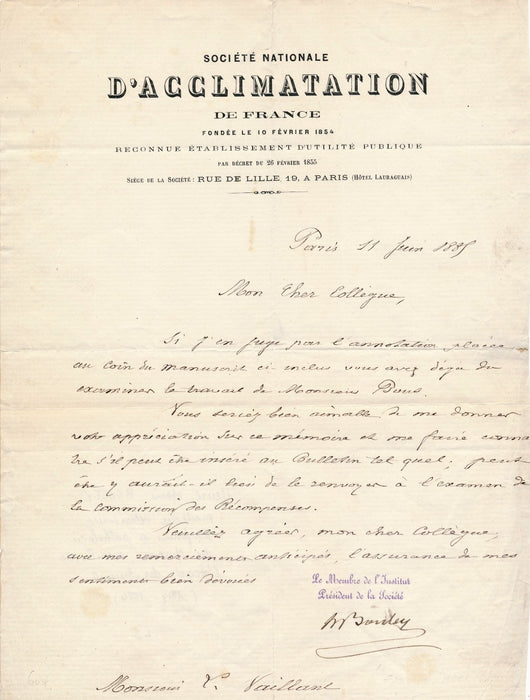 SOCIÉTÉ NATIONALE
D'ACCLIMATATION
DE FRANCE
FONDÉE LE 10 FÉVRIER 1854
RECONNUE ÉTABLISSEMENT D'UTILITÉ PUBLIQUE
PAR DÉCRET DU 26 FÉVRIER 1855
SIÈGE DE LA SOCIÉTÉ : RUE DE LILLE, 19, A PARIS (HÔTEL LAURAGUAIS)
Paris 11 Juin 1885
Mon Cher Collègue,
Si j'en juge par l'annotation placée
au coin du manuscrit ci inclus vous avez déja du
examiner le travail de Monsieur
Vous seriez bien aimable de me donner
votre appréciation sur ce mémoire et me faire connai
tre s'il peut être inséré au Bulletin tel quel; peut
être y aurait-il lieu de le renvoyer à l'examen de
la Commission des Récompenses.
Veuillez agréer, mon cher Collègue,
avec mes remerciements anticipés, l'assurance de mes
sentiments bien dévoués
Le Membre de l'Institut
Président de la Société
Bouley
Monsieur Vaillant